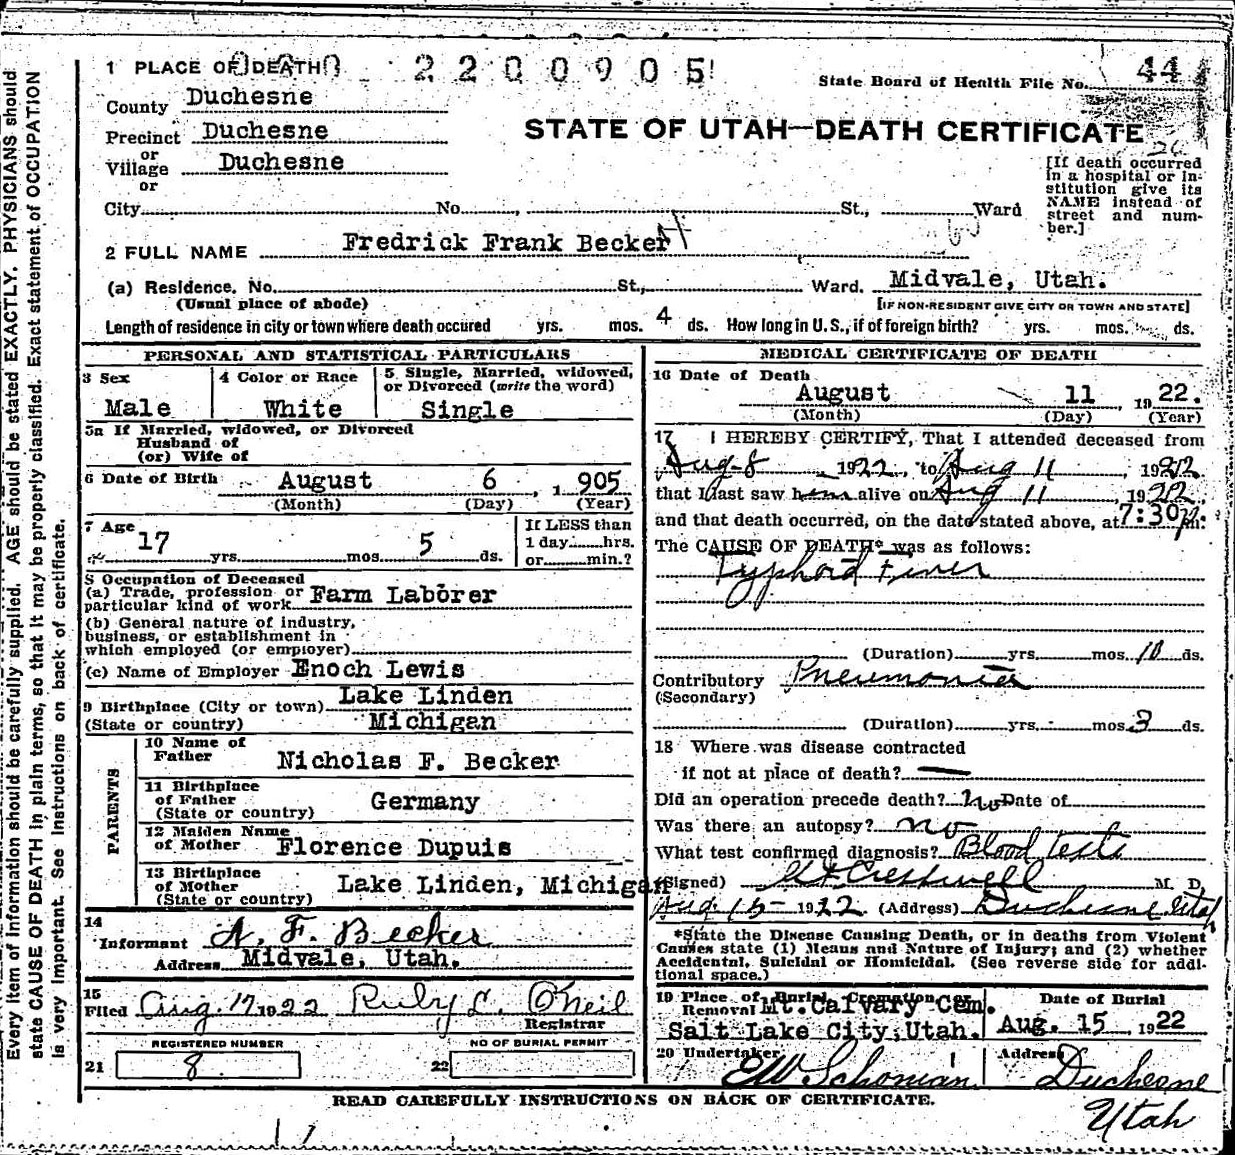 Every item of information should be carefully supplied. AGE should be stated EXACTLY. PHYSICIANS should
state CAUSE OF DEATH in plain terms, so that it may be properly classified. Exact statement of OCCUPATION
is very important. See Instructions on back of certificate.
1 PLACE OF DEATH
2200905
State Board of Health File No. 44
County Duchesne
STATE OF UTAH—DEATH CERTIFICATE
Precinct Duchesne
or
Village Duchesne
or
[If death occurred
in a hospital or in-
stitution give its
NAME instead of
street and num-
ber.]
City No. , St., Ward
2 FULL NAME Fredrick Frank Becker
(a) Residence. No. St., Ward. Midvale, Utah.
(Usual place of abode) [IF NON-RESIDENT GIVE CITY OR TOWN AND STATE]
Length of residence in city or town where death occured yrs. mos. 4 ds. How long in U. S., if of foreign birth? yrs. mos. ds.
PERSONAL AND STATISTICAL PARTICULARS
3 Sex
Male
4 Color or Race
White
5 Single, Married, widowed,
or Divorced (write the word)
Single
5a If Married, widowed, or Divorced
Husband of
(or) Wife of
6 Date of Birth August 6 , 1 905
(Month) (Day) (Year)
7 Age
17 yrs. mos. 5 ds.
If LESS than
1 day hrs.
or min.?
8 Occupation of Deceased
(a) Trade, profession or
particular kind of work Farm Laborer
(b) General nature of industry,
business, or establishment in
which employed (or employer)
(c) Name of Employer Enoch Lewis
9 Birthplace (City or town) Lake Linden
(State or country) Michigan
PARENTS
10 Name of
Father Nicholas F. Becker
11 Birthplace
of Father
(State or country) Germany
12 Maiden Name
of Mother Florence Dupuis
13 Birthplace
of Mother
(State or country) Lake Linden, Michigan
14
Informant N. F. Becker
Address Midvale, Utah.
15
Filed Aug. 17 1922 Ruby L. O'Neil
Registrar
REGISTERED NUMBER
21 8
NO OF BURIAL PERMIT
22
MEDICAL CERTIFICATE OF DEATH
16 Date of Death
August 11 , 19 22.
(Month) (Day) (Year)
17 I HEREBY CERTIFY, That I attended deceased from
Aug-8 1922, to Aug 11 1922
that I last saw him alive on Aug 11 1922,
and that death occurred, on the date stated above, at 7:30 p m.
The CAUSE OF DEATH* was as follows:
Typhoid Fever
(Duration) yrs. mos. 10 ds.
Contributory Pneumonia
(Secondary)
(Duration) yrs. mos. 3 ds.
18 Where was disease contracted
if not at place of death? —
Did an operation precede death? no Date of
Was there an autopsy? no
What test confirmed diagnosis? Blood tests
(Signed) M. D.
Aug. 15- 1922 (Address) Duchesne Utah
*State the Disease Causing Death, or in deaths from Violent
Causes state (1) Means and Nature of Injury; and (2) whether
Accidental, Suicidal or Homicidal. (See reverse side for addi-
tional space.)
19 Place of Burial, Cremation or
Removal Mt. Calvary Cem.
Salt Lake City, Utah.
Date of Burial
Aug. 15 , 1922
20 Undertaker
E W Schonian
Address
Duchesne
Utah
READ CAREFULLY INSTRUCTIONS ON BACK OF CERTIFICATE.